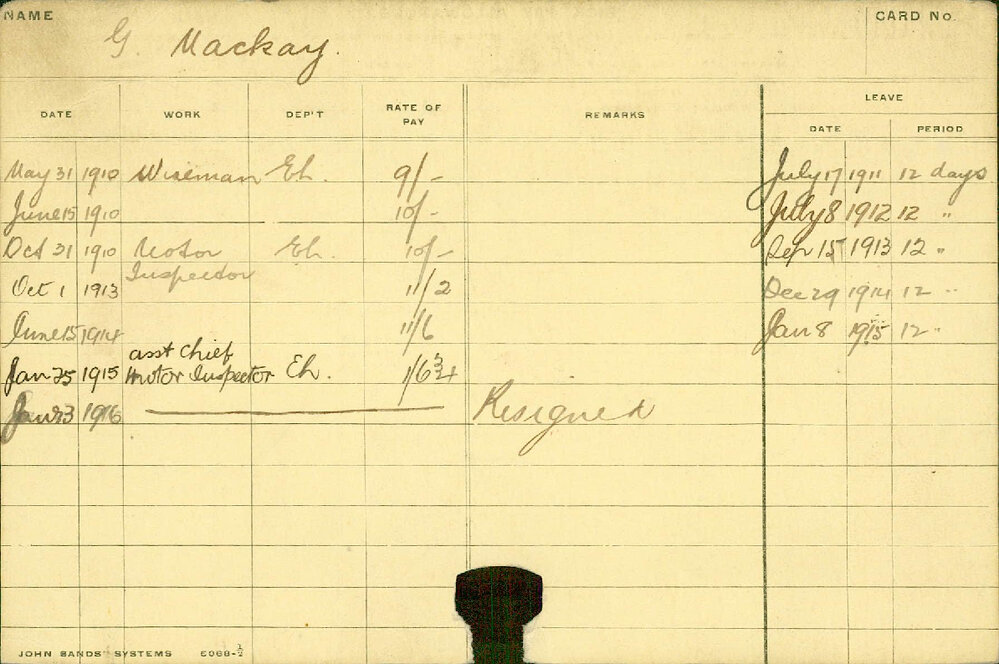 NAME
CARD No.
G. Mackay.
LEAVE
DATE WORK DEP'T RATE OF PAY REMARKS DATE PERIOD
May 31 1910 Wireman Eh. 9/- July 17 1911 12 days
June 15 1910 10/- July 8 1912 12 "
Oct 31 1910 Motor Eh. 10/- Sep 15 1913 12 "
Inspector
Oct 1 1913 11/2 Dec 29 1914 12 "
June 15 1914 11/6 Jan 8 1915 12 "
asst Chief
Jan 25 1915 Motor Inspector Eh.
Jan 23 1916 Resigned
JOHN SANDS' SYSTEMS 6068-½